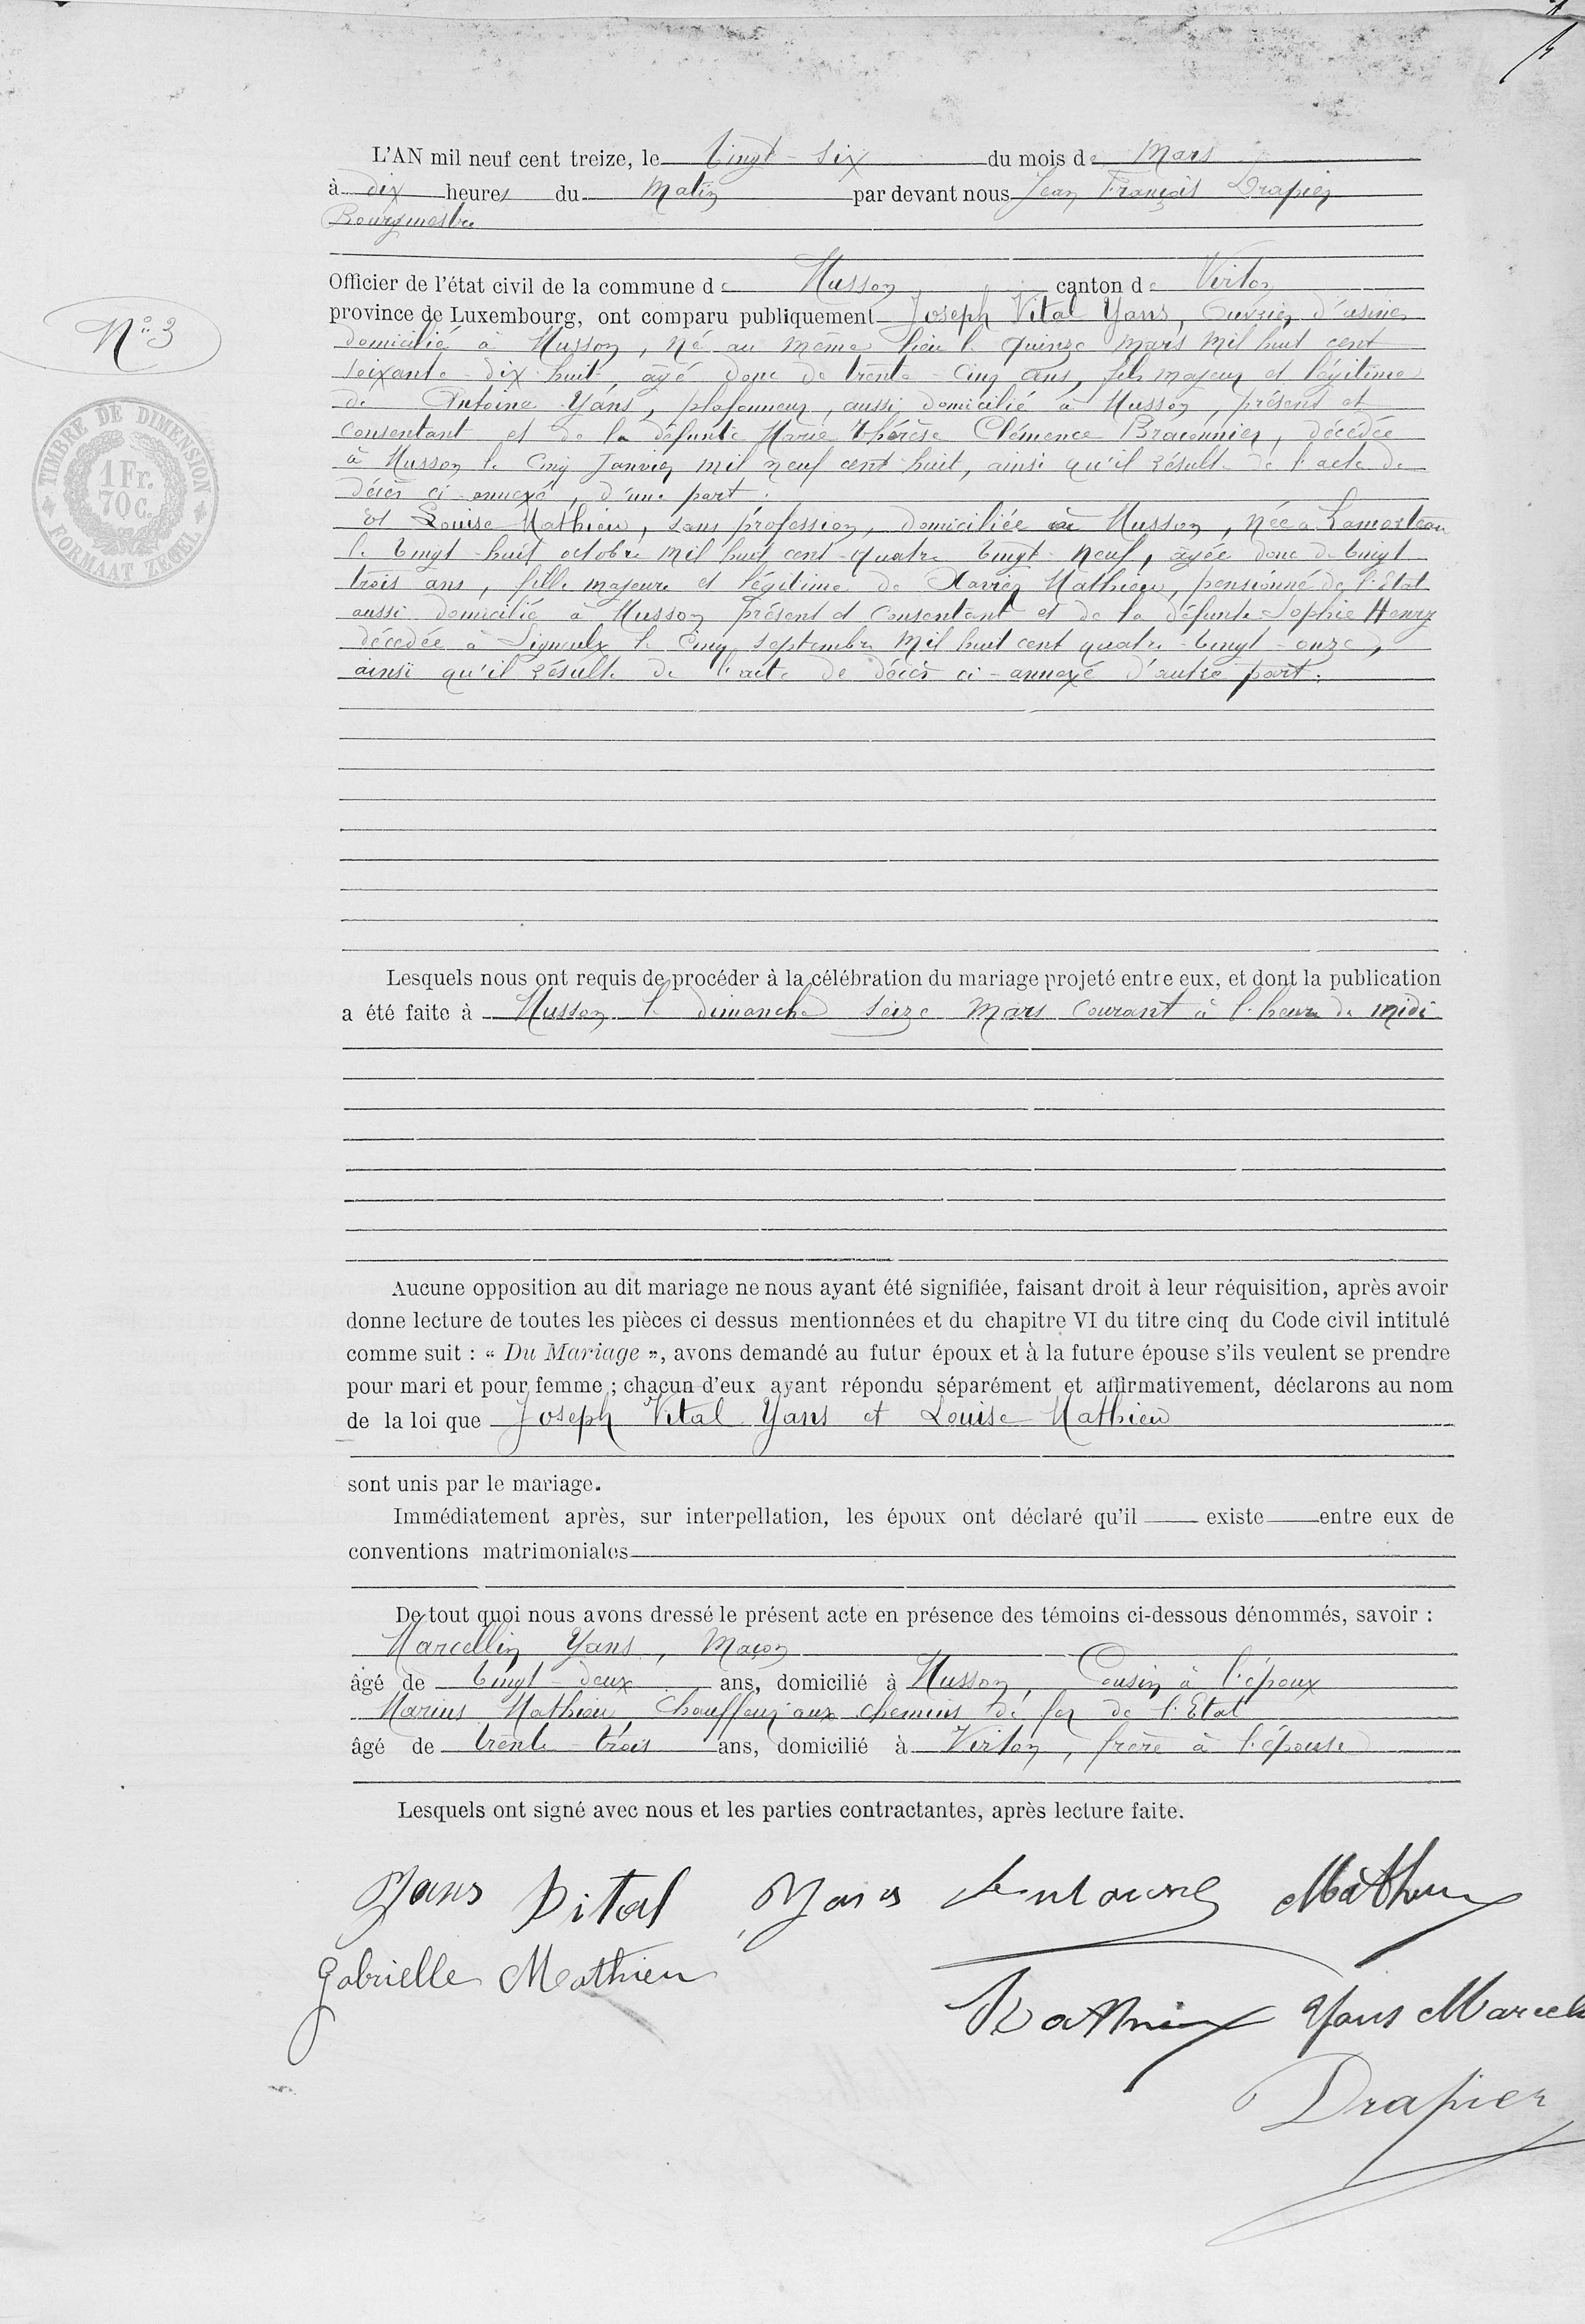 L'AN mil neuf cent treize, le vingt-six du mois de Mars
à dix heures du Matin par devant nous Jean François Drapier
Bourgmestre
Officier de l'état civil de la commune de Musson canton de Virton
province de Luxembourg, ont comparu publiquement Joseph Vital Yans, Ouvrier d'usines
N° 3
domicilié à Musson, né au même lieu le quinze Mars mil huit cent
soixante-dix-huit, âgé donc de trente-cinq ans, fils majeur et légitime
de Antoine Yans, plafonneur, aussi domicilié à Musson, présent et
consentant et de la défunte Marie Thérèse Clémence Braconnier, décédée
à Musson le cinq Janvier mil neuf cent huit, ainsi qu'il résulte de l'acte de
décès ci-annexé, d'une part.
TIMBRE DE DIMENSION
1 Fr.
70 C.
FORMAAT ZEGEL
Et Louise Mathieu, sans profession, domiciliée à Musson, née à Lamorteau
le vingt-huit octobre mil huit cent-quatre vingt-neuf, âgée donc de vingt
trois ans, fille majeure et légitime de Xavier Mathieu, pensionné de l'Etat
aussi domicilié à Musson présent et consentant et de la défunte Sophie Henry
décédée à Signeulx le cinq septembre mil huit cent quatre-vingt-onze,
ainsi qu'il résulte de l'acte de décès ci-annexé d'autre part.
Lesquels nous ont requis de procéder à la célébration du mariage projeté entre eux, et dont la publication
a été faite à Musson le dimanche seize Mars courant à l'heure de midi
Aucune opposition au dit mariage ne nous ayant été signifiée, faisant droit à leur réquisition, après avoir
donne lecture de toutes les pièces ci dessus mentionnées et du chapitre VI du titre cinq du Code civil intitulé
comme suit : « Du Mariage », avons demandé au futur époux et à la future épouse s'ils veulent se prendre
pour mari et pour femme ; chacun d'eux ayant répondu séparément et affirmativement, déclarons au nom
de la loi que Joseph Vital Yans et Louise Mathieu
sont unis par le mariage.
Immédiatement après, sur interpellation, les époux ont déclaré qu'il existe entre eux de
conventions matrimoniales
De tout quoi nous avons dressé le présent acte en présence des témoins ci-dessous dénommés, savoir :
Marcellin Yans, Maçon
âgé de vingt-deux ans, domicilié à Musson, Cousin à l'époux
Marius Mathieu, Chauffeur aux chemins de fer de l'Etat
âgé de trente-trois ans, domicilié à Virton, frère à l'épouse
Lesquels ont signé avec nous et les parties contractantes, après lecture faite.
Yans Vital Yans Mathieu
Gabrielle Mathieu
Mathieu Yans Marcel
Drapier